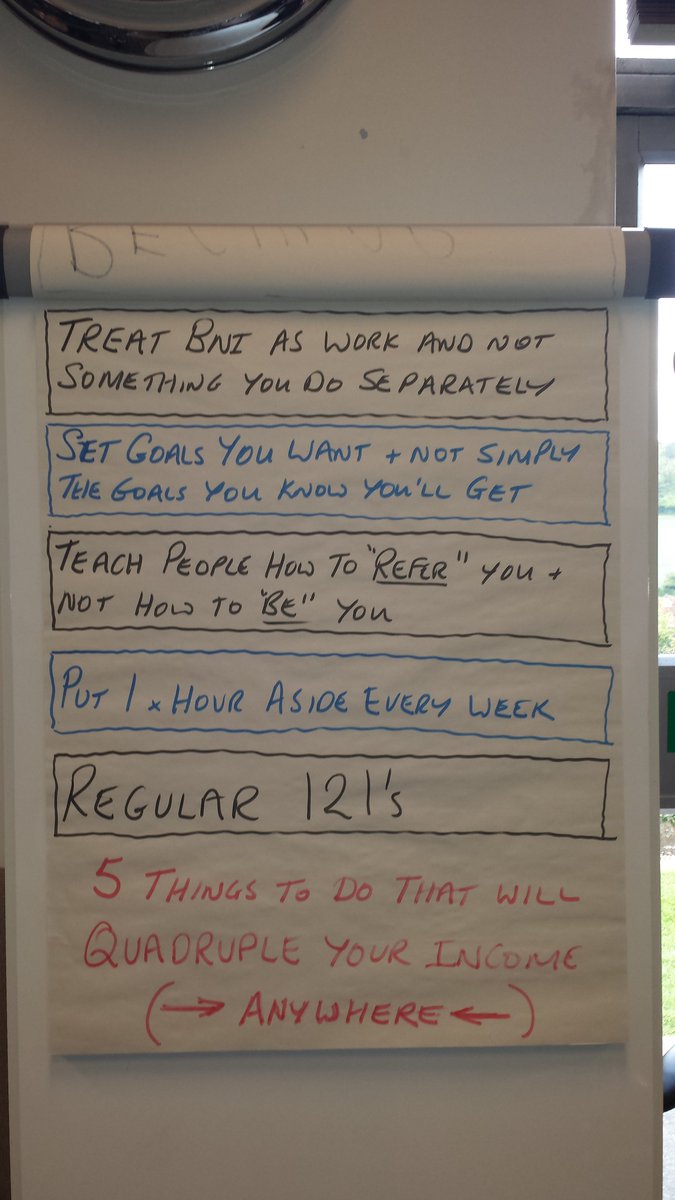 TREAT BNI AS WORK AND NOT
SOMETHING YOU DO SEPARATELY
SET GOALS YOU WANT + NOT SIMPLY
THE GOALS YOU KNOW YOU'LL GET
TEACH PEOPLE HOW TO "REFER" YOU +
NOT HOW TO "BE" YOU
PUT 1 x HOUR ASIDE EVERY WEEK
REGULAR 121's
5 THINGS TO DO THAT WILL
QUADRUPLE YOUR INCOME
(→ ANYWHERE ←)